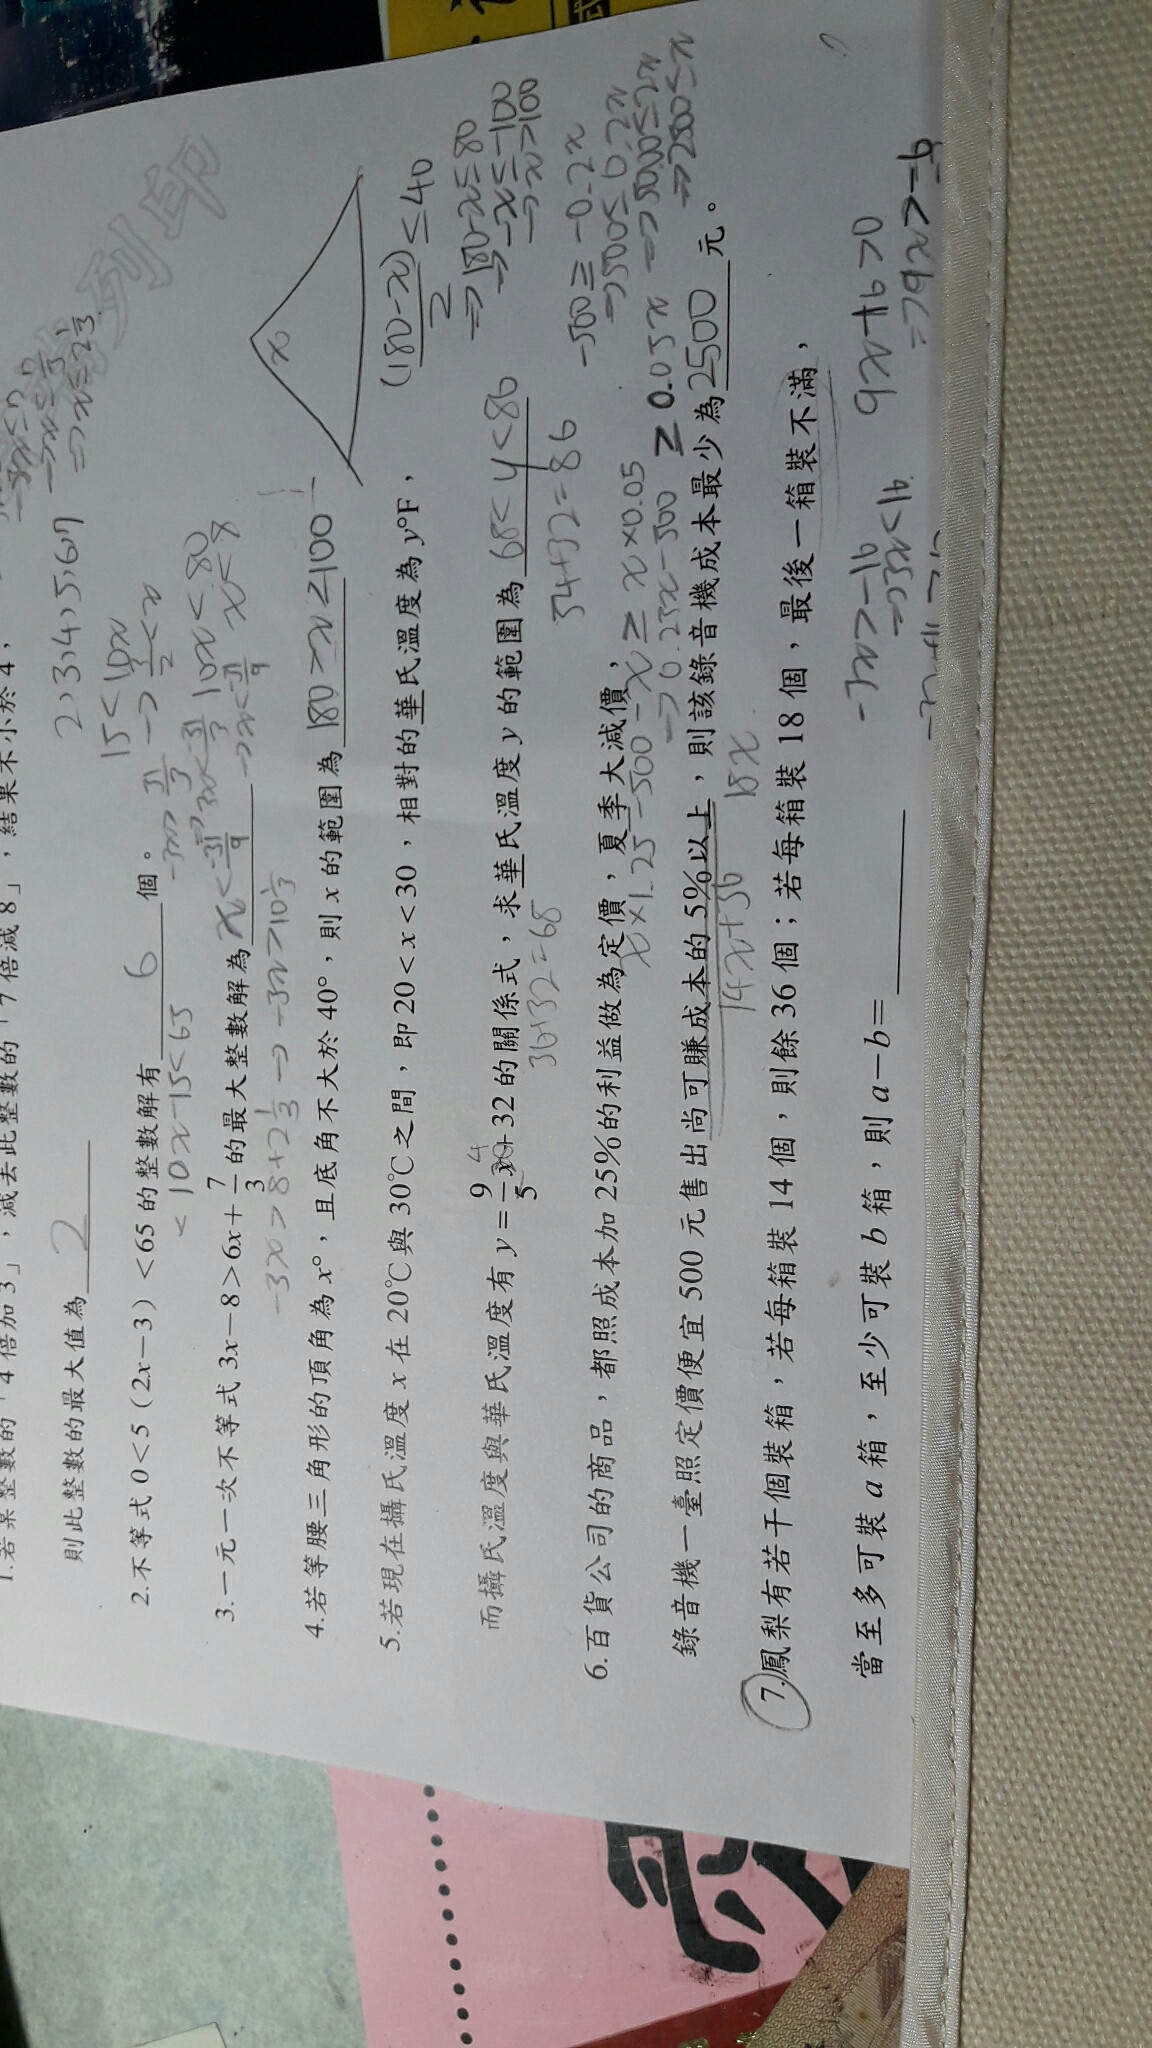 1.若某整數的「4倍加3」，減去此整數的「7倍減8」，結果不小於4，
則此整數的最大值為 2
2.不等式 0<5(2x-3)<65 的整數解有 6 個。
2,3,4,5,6,7
<10x-15<65
15<10x
10x<80
x<8
3.一元一次不等式 3x-8>6x+7/3 的最大整數解為 x<-31/9
-3x>8+2 1/3 → -3x>10 1/3
4.若等腰三角形的頂角為 x°，且底角不大於 40°，則 x 的範圍為 180>x≥100
x
(180-x)/2 ≤40
⇒180-x≤80
⇒-x≤-100
5.若現在攝氏溫度 x 在 20℃與 30℃之間，即 20<x<30，相對的華氏溫度為 y°F，
而攝氏溫度與華氏溫度有 y=9/5x+32 的關係式，求華氏溫度 y 的範圍為 68<y<86
36+32=68
54+32=86
6.百貨公司的商品，都照成本加 25%的利益做為定價，夏季大減價，
x×1.25-500-x≥x×0.05
→0.25x-500≥0.05x
-500≥-0.2x
⇒500≤0.2x
⇒5000≤2x
⇒2500≤x
錄音機一臺照定價便宜 500 元售出尚可賺成本的 5%以上，則該錄音機成本最少為 2500 元。
14x+36
18x
7.鳳梨有若干個裝箱，若每箱裝 14 個，則餘 36 個；若每箱裝 18 個，最後一箱裝不滿，
當至多可裝 a 箱，至少可裝 b 箱，則 a-b=